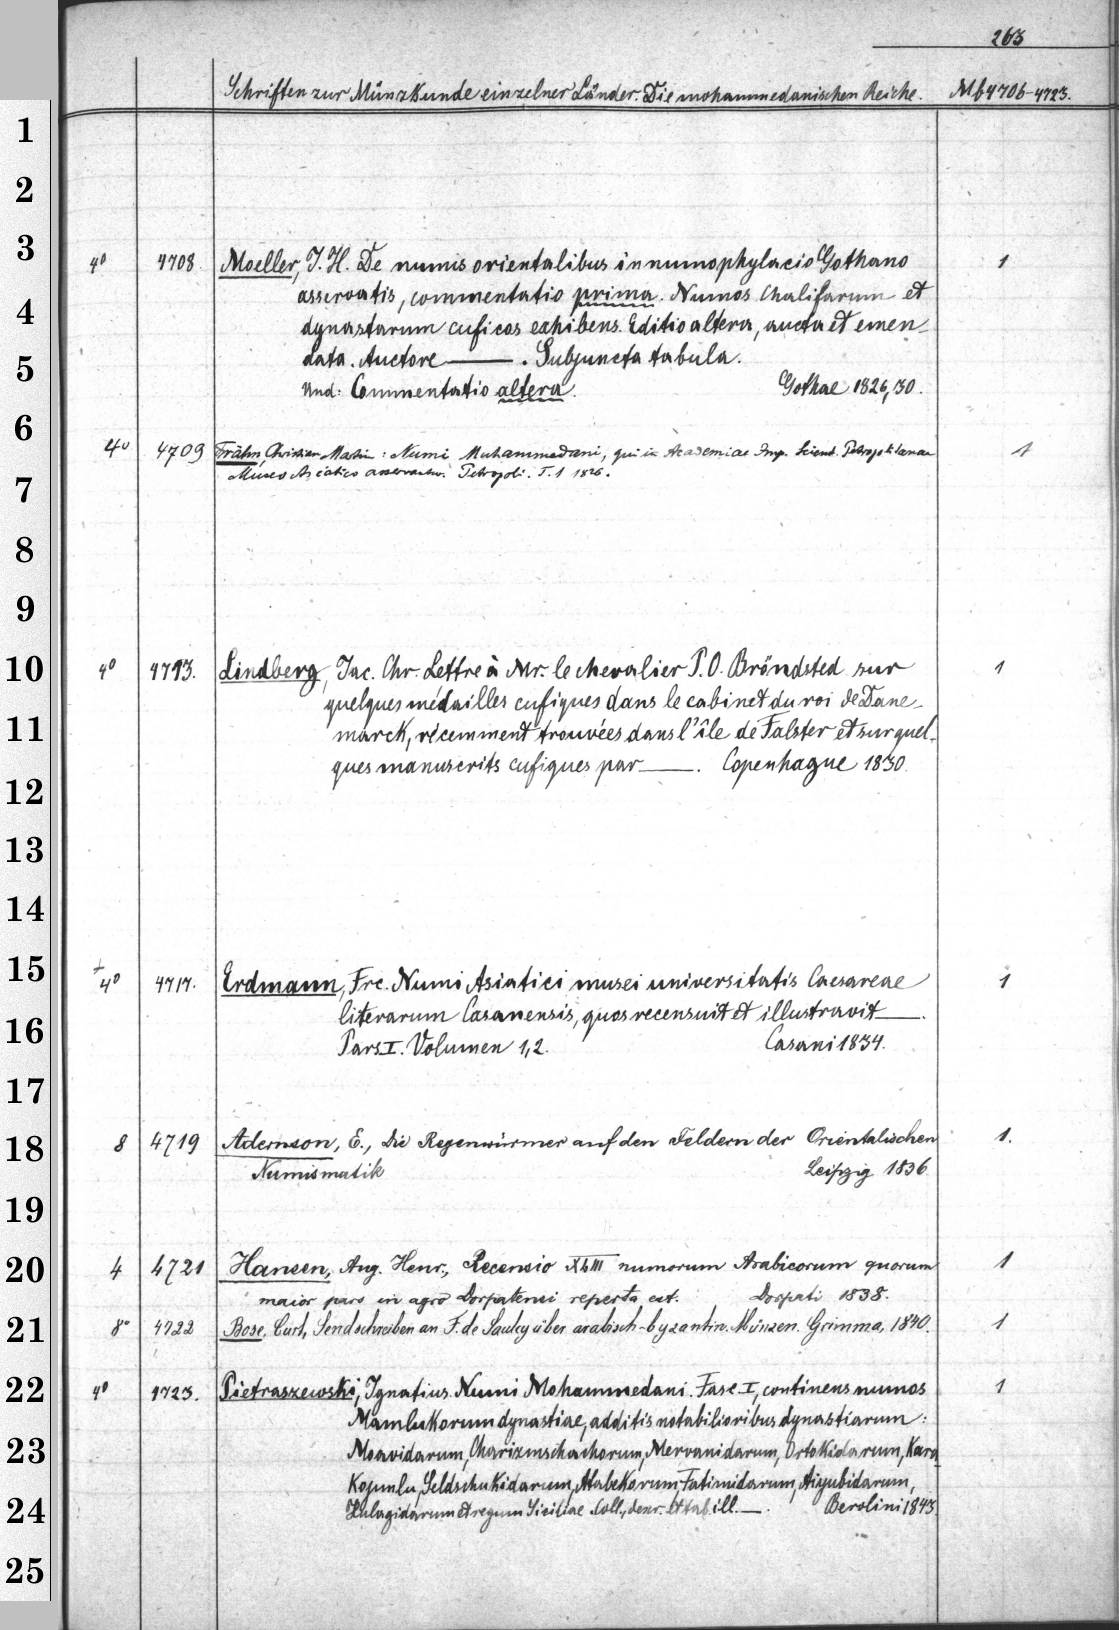 263
Schriften zur Münzkunde einzelner Länder. Die mohammedanischen Reiche. Mb 4706-4723.
1
2
3
4
5
6
7
8
9
10
11
12
13
14
15
16
17
18
19
20
21
22
23
24
25
4° 4708. Moeller, J. H. De numis orientalibus in numophylacio Gothano 1
asservatis, commentatio prima. Numos Chalifarum et
dynastarum cuficos exhibens. Editio altera, aucta et emen-
data. Auctore ——. Subjuncta tabula.
Und: Commentatio altera. Gothae 1826,30.
4° 4709 Frähn, Christian Martin: Numi Muhammedani, qui in Academiae Imp. Scient. Petropolitanae 1
Museo Asiatico asservantur. Petropoli. T. 1 1826.
4° 4713. Lindberg, Jac. Chr. Lettre à Mr. le chevalier P. O. Bröndsted sur 1
quelques médailles cufiques dans le cabinet du roi de Dane-
marck, récemment trouvées dans l'île de Falster et sur quel-
ques manuscrits cufiques par ——. Copenhague 1830.
+
4° 4717. Erdmann, Fre. Numi Asiatici musei universitatis Caesareae 1
literarum Casanensis, quos recensuit et illustravit ——.
Pars I. Volumen 1,2. Casani 1834.
8 4719 Adernson, E., Die Regenwürmer auf den Feldern der Orientalischen 1.
Numismatik Leipzig 1836
4 4721 Hansen, Aug. Henr., Recensio numorum Arabicorum quorum 1
maior pars in agro Dorpatensi reperta est. Dorpati 1838.
8° 4722 Bose, Curt, Sendschreiben an F. de Saulcy über arabisch-byzantin. Münzen. Grimma, 1840. 1
4° 4723. Pietraszewski, Ignatius. Numi Mohammedani. Fasc. I, continens numos 1
Mamlukorum dynastiae, additis notabilioribus dynastiarum:
Moavidarum, Charizmschachorum, Mervanidarum, Ortokidarum, Kara
Kojunlu, Seldschukidarum, Atabekorum, Fatimidarum, Aiyubidarum,
Hulagidarum et regum Siciliae. Coll., descr. et tab. ill. ——. Berolini 1843